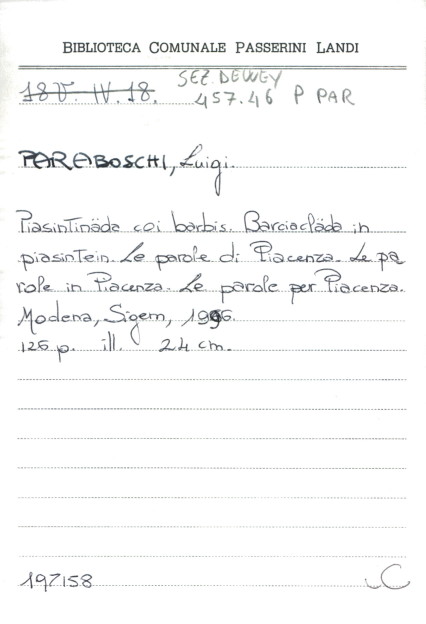 BIBLIOTECA COMUNALE PASSERINI LANDI
18 V. IV. 18. SEZ. DEWEY
457.46 P PAR
PARABOSCHI, Luigi.
Piasintinäde coi barbis. Barciacläde in
piasintein. Le parole di Piacenza. Le pa
role in Piacenza. Le parole per Piacenza.
Modena, Sigem, 1996.
126 p. ill. 24 cm.
197158